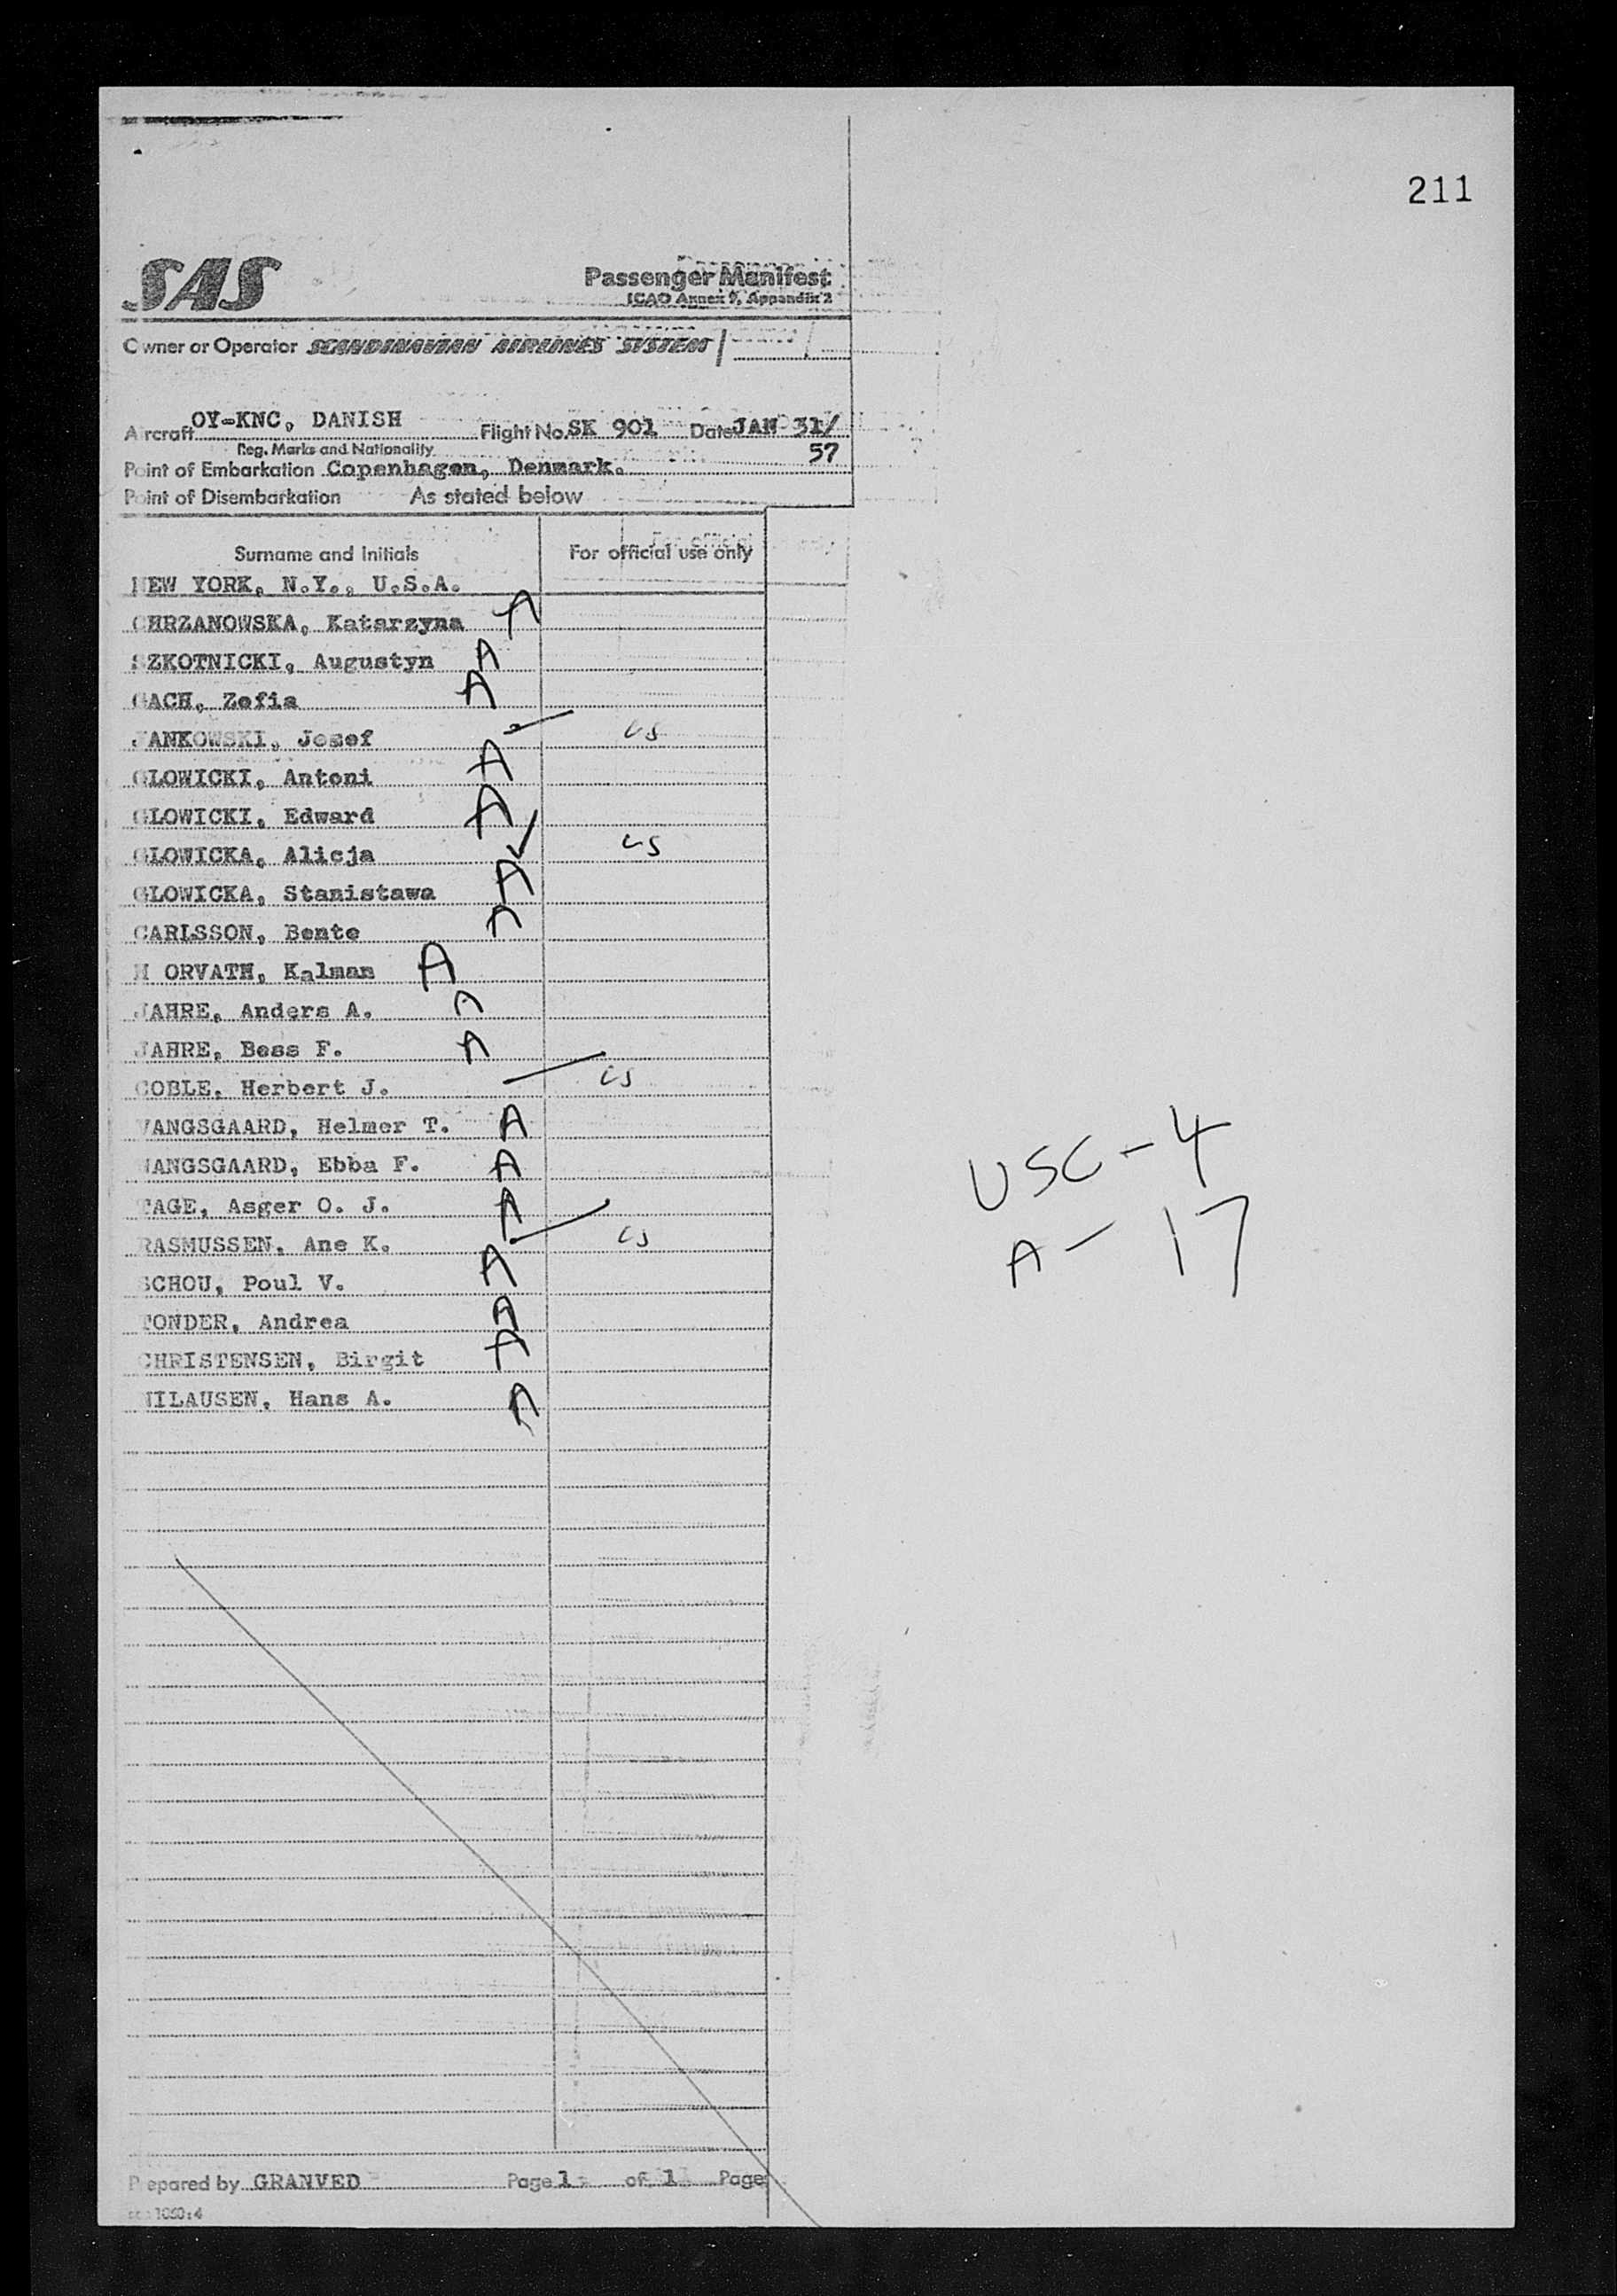 211
SAS
Passenger Manifest
ICAO Annex 9, Appendix 2
Owner or Operator SCANDINAVIAN AIRLINES SYSTEM
Aircraft OY-KNC, DANISH Flight No. SK 901 Date JAN 31/
57
Reg. Marks and Nationality
Point of Embarkation Copenhagen, Denmark.
Point of Disembarkation As stated below
Surname and Initials For official use only
NEW YORK, N.Y., U.S.A.
CHRZANOWSKA, Katarzyna A
SZKOTNICKI, Augustyn A
GACH, Zofia A
JANKOWSKI, Josef US
GLOWICKI, Antoni A
GLOWICKI, Edward A
GLOWICKA, Alicja US
GLOWICKA, Stanistawa A
CARLSSON, Bente A
H ORVATH, Kalman A
JAHRE, Anders A. A
JAHRE, Bess F. A
COBLE, Herbert J. US
VANGSGAARD, Helmer T. A
VANGSGAARD, Ebba F. A
TAGE, Asger O. J. A
RASMUSSEN, Ane K. US
SCHOU, Poul V. A
TONDER, Andrea A
CHRISTENSEN, Birgit A
NILAUSEN, Hans A. A
USC-4
A-17
Prepared by GRANVED Page 1 of 1 Page
1050:4